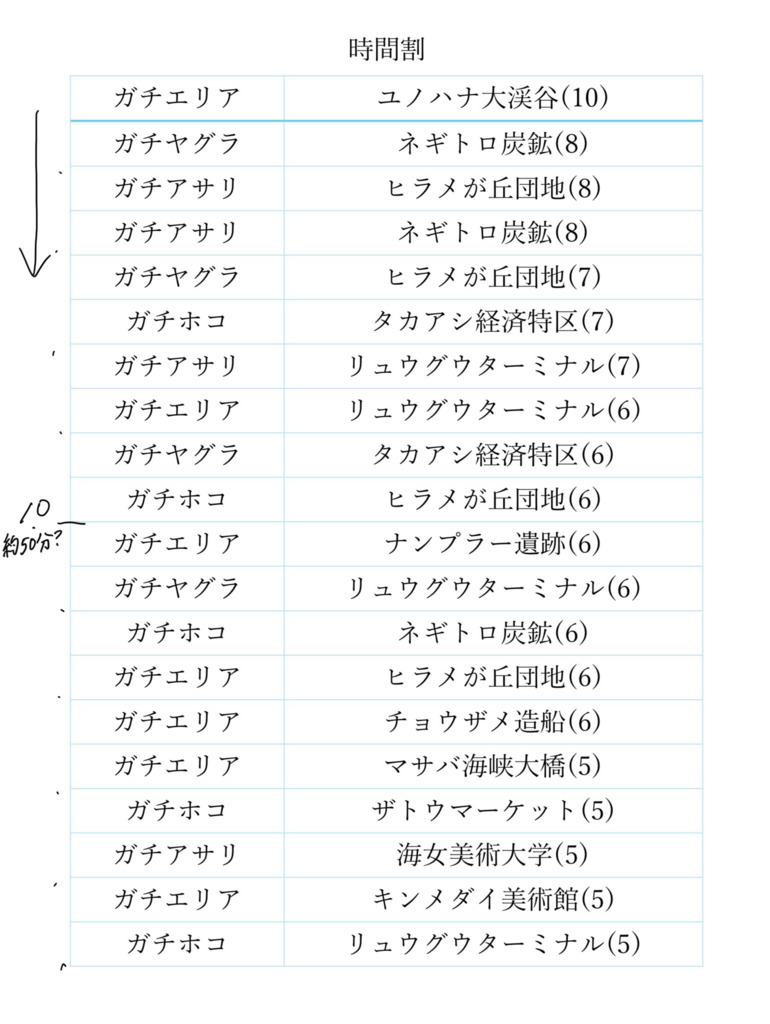 時間割
ガチエリア ユノハナ大渓谷(10)
ガチヤグラ ネギトロ炭鉱(8)
ガチアサリ ヒラメが丘団地(8)
ガチアサリ ネギトロ炭鉱(8)
ガチヤグラ ヒラメが丘団地(7)
ガチホコ タカアシ経済特区(7)
ガチアサリ リュウグウターミナル(7)
ガチエリア リュウグウターミナル(6)
ガチヤグラ タカアシ経済特区(6)
ガチホコ ヒラメが丘団地(6)
10
約50分?
ガチエリア ナンプラー遺跡(6)
ガチヤグラ リュウグウターミナル(6)
ガチホコ ネギトロ炭鉱(6)
ガチエリア ヒラメが丘団地(6)
ガチエリア チョウザメ造船(6)
ガチエリア マサバ海峡大橋(5)
ガチホコ ザトウマーケット(5)
ガチアサリ 海女美術大学(5)
ガチエリア キンメダイ美術館(5)
ガチホコ リュウグウターミナル(5)